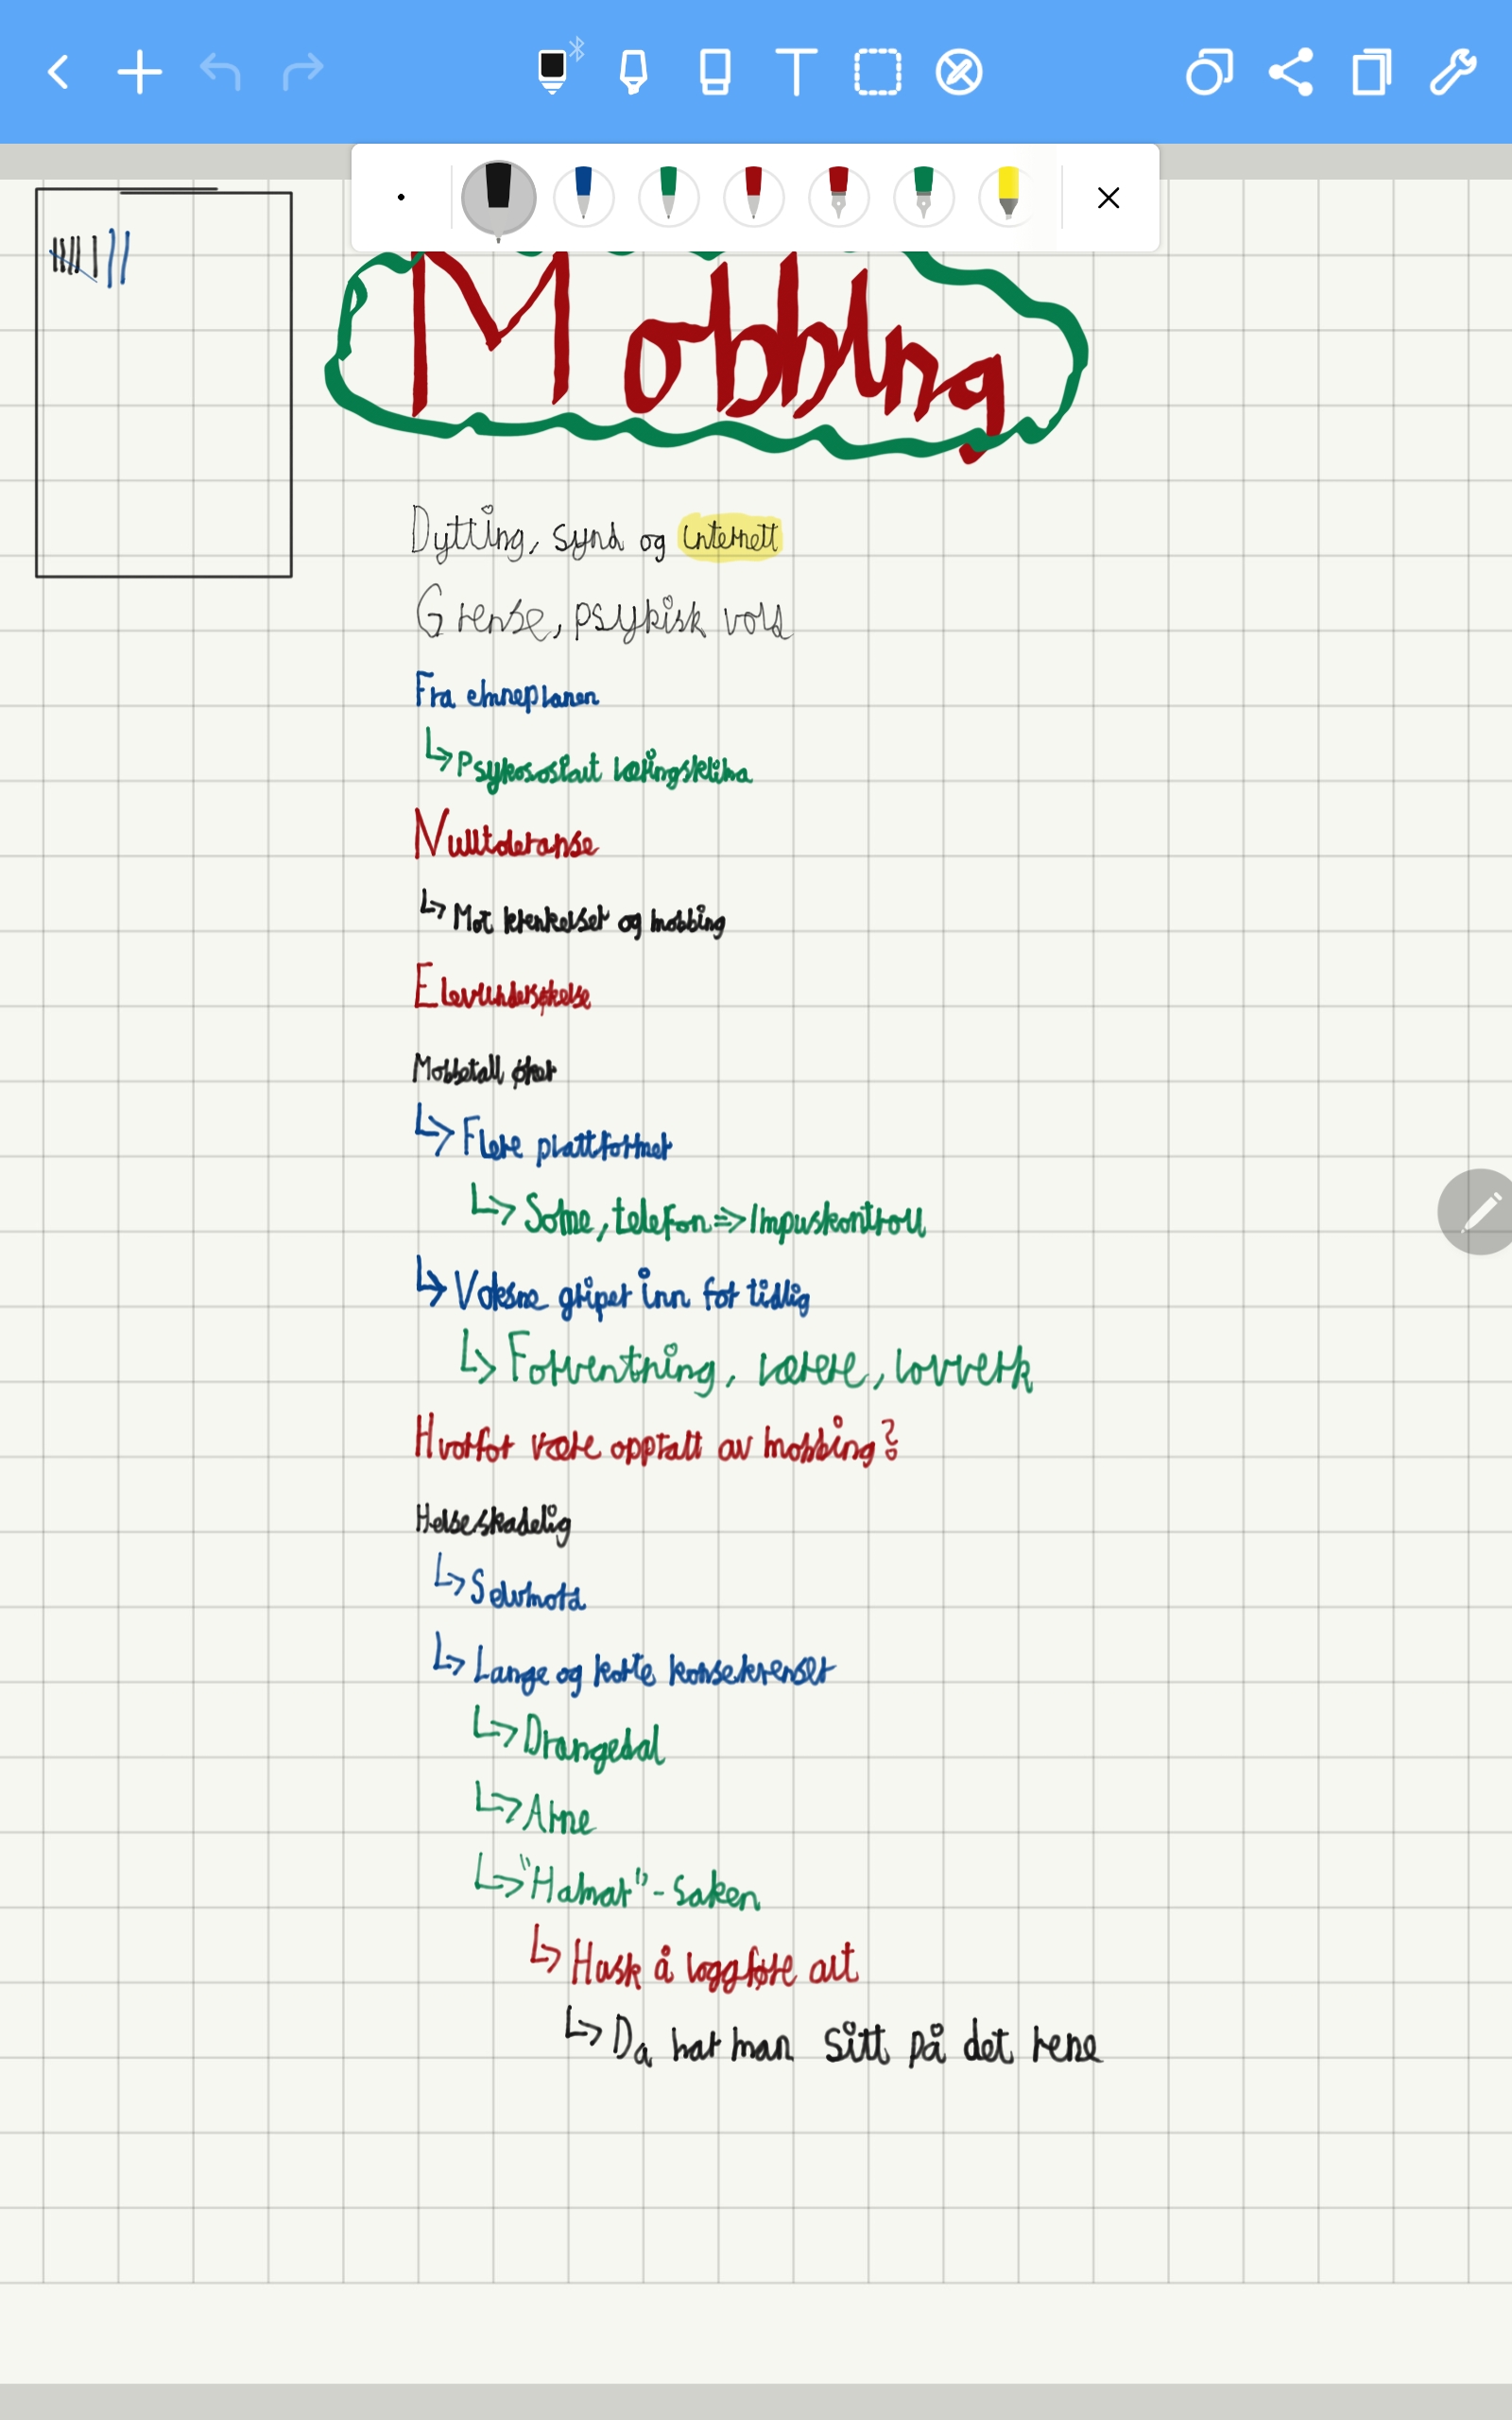 Mobbing
Dytting, synd og internett
Grense, psykisk vold
Fra emneplanen
Psykososialt læringsklima
Nulltoleranse
Mot krenkelser og mobbing
Elevundersøkelse
Mobbetall øker
Flere plattformer
Some, telefon => Impuskontroll
Voksne griper inn for tidlig
Forventning, lærere, lovverk
Hvorfor være opptatt av mobbing?
Helseskadelig
Selvmord
Lange og korte
Drangedal
Arne
"Hamar"-saken
Husk å loggføre alt
Da har man sitt på det rene